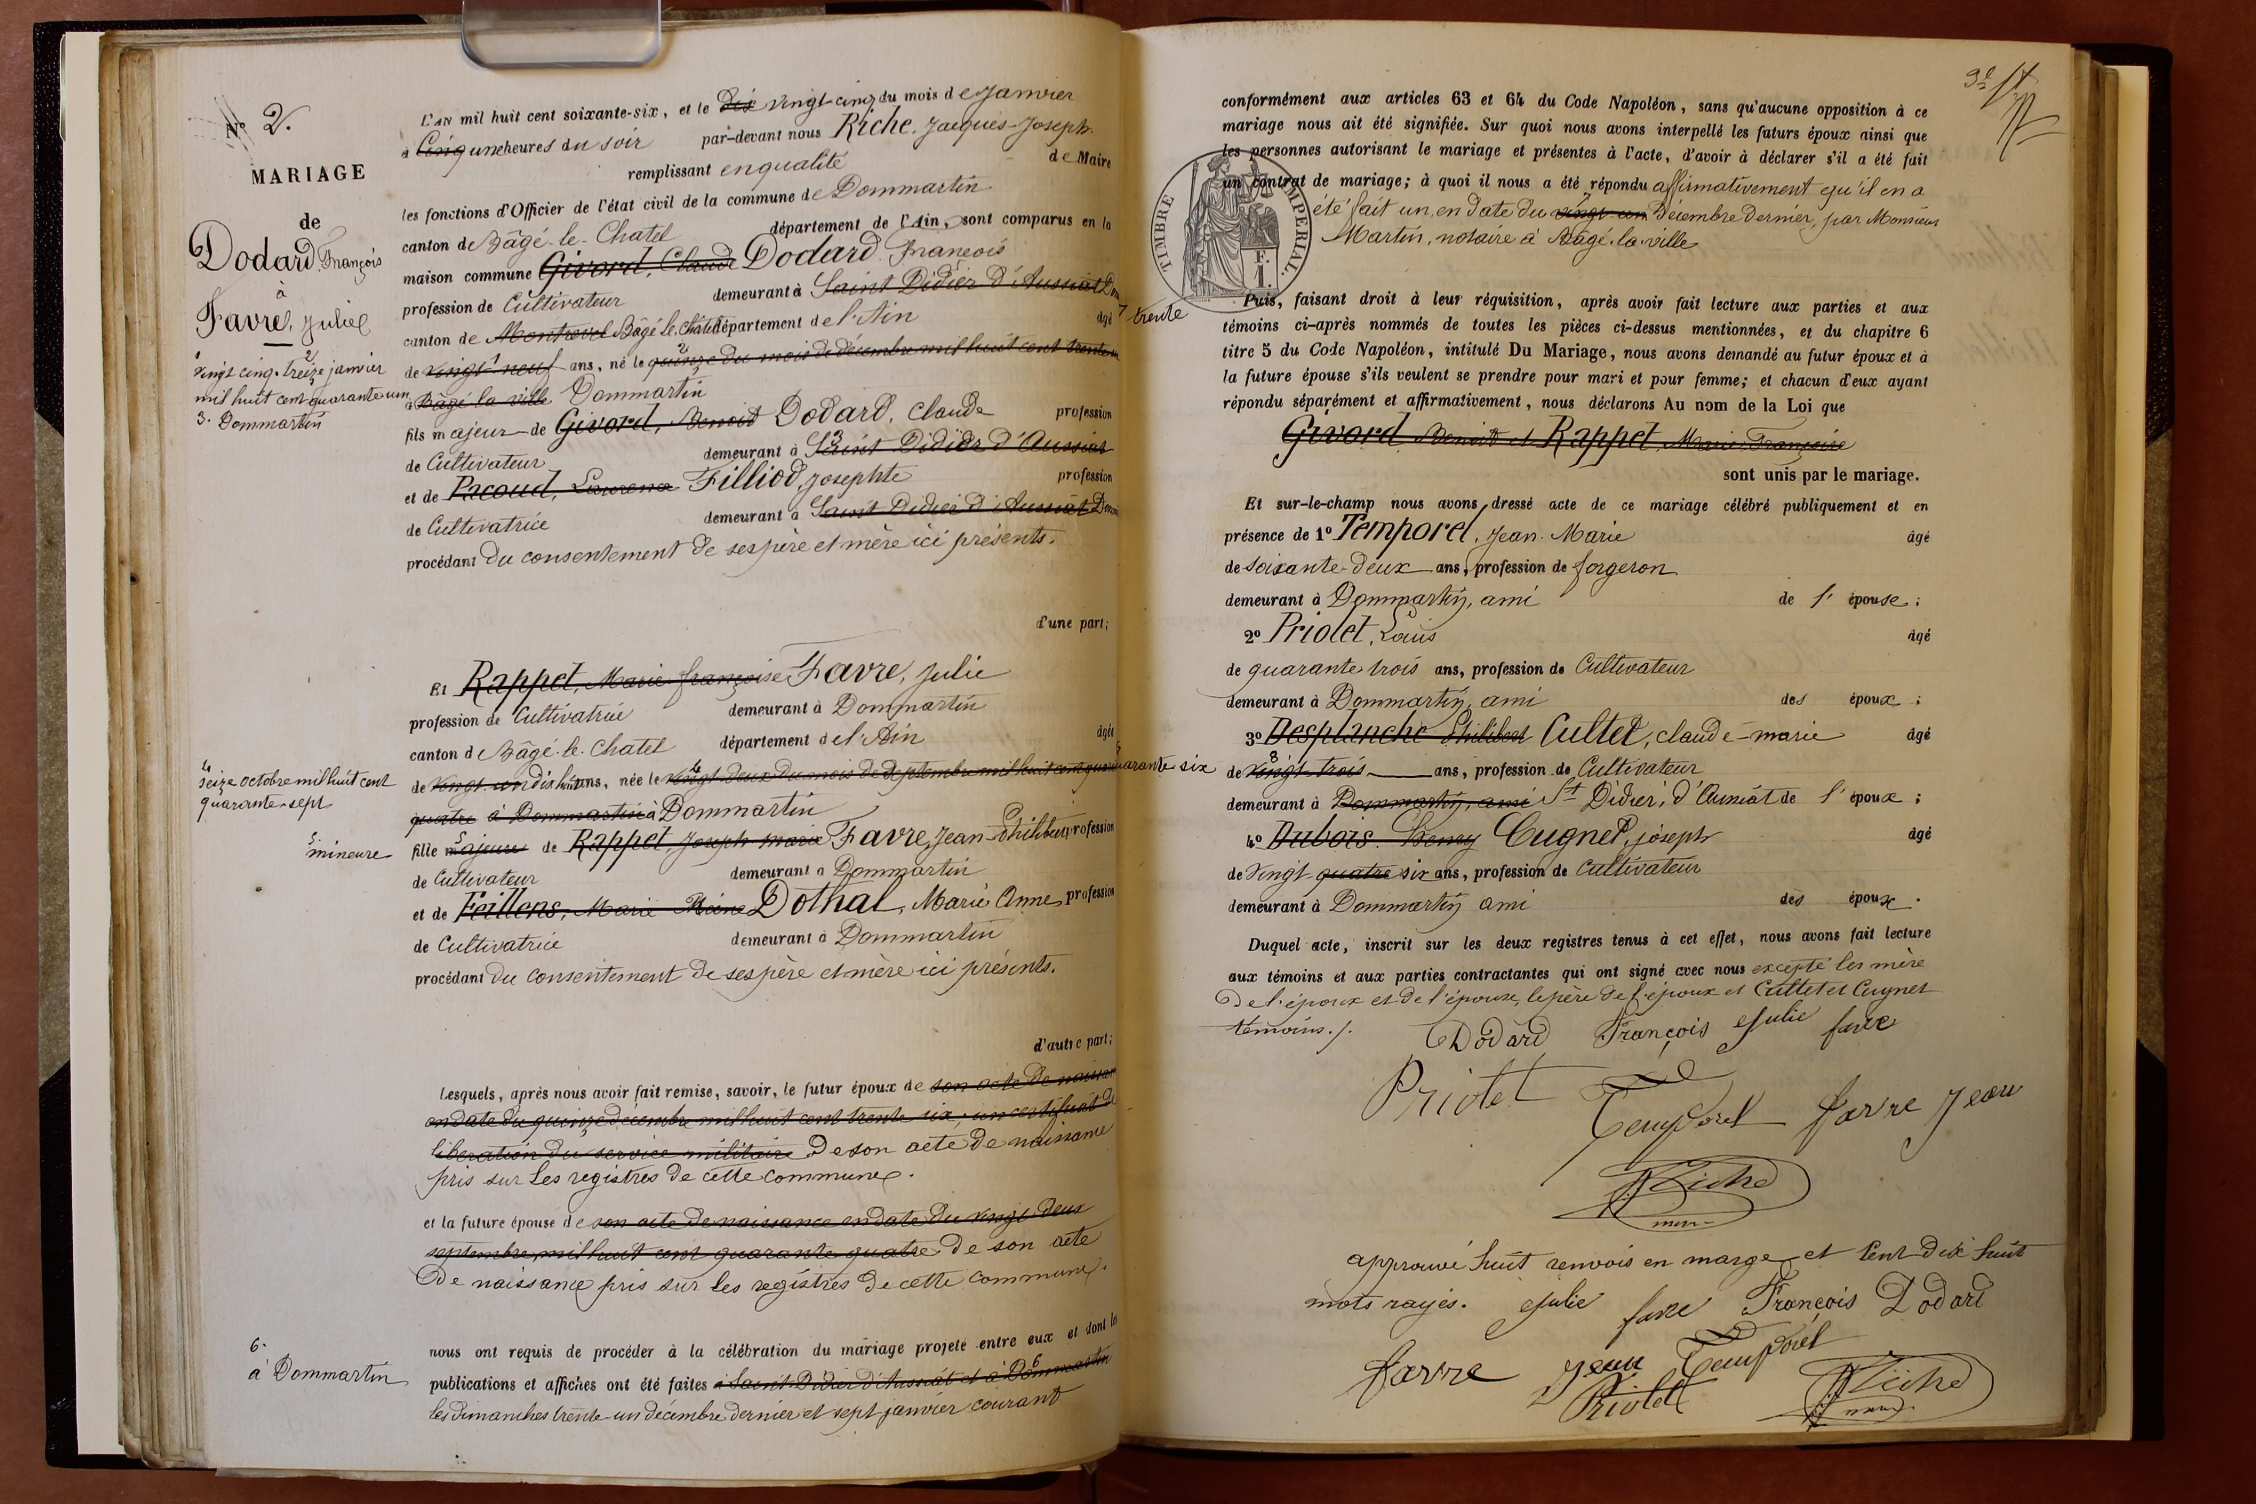 Nº 2.
MARIAGE
de
Dodard, François
à
Favre, Julie
1 vingt cinq. 2 treize janvier
mil huit cent quarante un
3. Dommartin
L'AN mil huit cent soixante-six, et le dix vingt-cinq du mois de Janvier
à Cinq une heures du soir par-devant nous Riche, Jacques-Joseph.
remplissant en qualité de Maire
les fonctions d'Officier de l'état civil de la commune de Dommartin
canton de Bâgé-le-Chatel département de l'Ain, sont comparus en la
maison commune Givord, Claude Dodard François
profession de Cultivateur demeurant à Saint Didier d'Aussiat
canton de Montrevel Bâgé le Châtel département de l'Ain âgé
de vingt neuf ans, né le quinze du mois de décembre mil huit cent trente
à Bâgé la ville Dommartin
fils majeur de Givord, Benoit Dodard, Claude profession
de Cultivateur demeurant à Saint Didier d'Aussiat
et de Pacoud, Laurence Filliod, Josephte profession
de Cultivatrice demeurant à Saint Didier d'Aussiat
procédant du consentement de ses père et mère ici présents.
d'une part;
Et Rappet, Marie françoise Favre, Julie
profession de Cultivatrice demeurant à Dommartin
canton de Bâgé-le-Chatel département de l'Ain âgée
4 seize octobre mil huit cent
quarante-sept
de vingt un dix huit ans, née le vingt deux du mois de septembre mil huit cent quarante
quatre à Dommartin à Dommartin
5. mineure
fille majeure de Rappet, Joseph Marie Favre, Jean-Philibert profession
de Cultivateur demeurant à Dommartin
et de Feillens, Marie Dothal, Marie Anne, profession
de Cultivatrice demeurant à Dommartin
procédant du consentement de ses père et mère ici présents.
d'autre part;
Lesquels, après nous avoir fait remise, savoir, le futur époux de son acte de naissance
en date du quinze décembre mil huit cent trente six, un certificat de
libération du service militaire de son acte de naissance
pris sur les registres de cette commune.
et la future épouse de son acte de naissance en date du vingt deux
septembre mil huit cent quarante quatre de son acte
de naissance pris sur les registres de cette commune.
nous ont requis de procéder à la célébration du mariage projeté entre eux et dont les
6.
à Dommartin
publications et affiches ont été faites à Saint Didier d'Aussiat et à Dommartin
les dimanches trente un décembre dernier et sept janvier courant
conformément aux articles 63 et 64 du Code Napoléon, sans qu'aucune opposition à ce
mariage nous ait été signifiée. Sur quoi nous avons interpellé les futurs époux ainsi que
les personnes autorisant le mariage et présentes à l'acte, d'avoir à déclarer s'il a été fait
un contrat de mariage; à quoi il nous a été répondu affirmativement qu'il en a
été fait un, en date du vingt-un Décembre dernier, par Monsieur
Martin, notaire à Bâgé-la-ville
TIMBRE IMPERIAL.
F.
1.
7 trente
Puis, faisant droit à leur réquisition, après avoir fait lecture aux parties et aux
témoins ci-après nommés de toutes les pièces ci-dessus mentionnées, et du chapitre 6
titre 5 du Code Napoléon, intitulé Du Mariage, nous avons demandé au futur époux et à
la future épouse s'ils veulent se prendre pour mari et pour femme; et chacun d'eux ayant
répondu séparément et affirmativement, nous déclarons Au nom de la Loi que
Givord Benoit et Rappet, Marie Françoise
sont unis par le mariage.
Et sur-le-champ nous avons dressé acte de ce mariage célébré publiquement et en
présence de 1º Temporel, Jean-Marie âgé
de soixante-deux ans, profession de forgeron
demeurant à Dommartin, ami de l'épouse;
2º Priolet, Louis âgé
de quarante trois ans, profession de Cultivateur
demeurant à Dommartin, ami des époux;
3º Desplanche Philibert Cultet, claude-marie âgé
8 quarante six
de vingt-trois ans, profession de Cultivateur
demeurant à Dommartin, ami St Didier, d'Aussiat de l'époux;
4º Dubois Cugnet, joseph âgé
de vingt quatre six ans, profession de cultivateur
demeurant à Dommartin ami des époux.
Duquel acte, inscrit sur les deux registres tenus à cet effet, nous avons fait lecture
aux témoins et aux parties contractantes qui ont signé avec nous excepté les mère
de l'époux et de l'épouse, le père de l'époux et Cultet et Cugnet
témoins./.
Dodard François Julie favre
Priolet
Temporel favre Jean
Riche
approuvé huit renvois en marge et Cent dix huit
mots rayés. Julie favre François Dodard
favre Jean Temporel
Priolet Riche